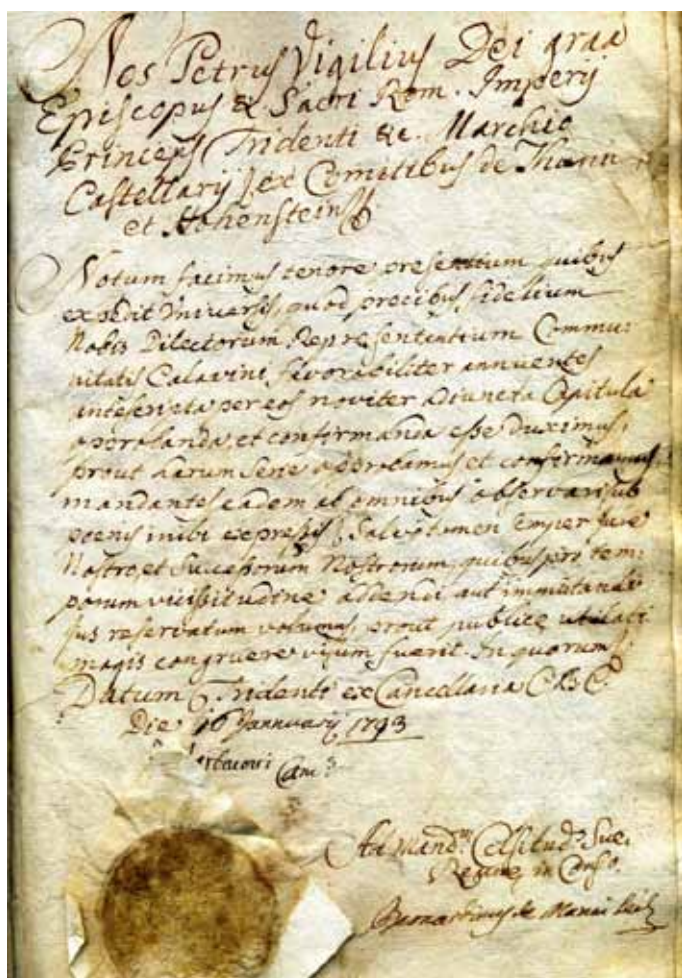 Nos Petrus Vigilius Dei graa
Episcopus & Sacri Rom. Imperij
Princeps Tridenti &c. Marchio
Castellarij, ex Comitibus de Thunn
et Hohenstein
Notum facimus tenore presentium quibus
expedit Universis, quod precibus fidelium
Nobis Dilectorum Representantium Commu:
nitatis Calavini favorabiliter annuentes
inserta per eos noviter adiuncta Capitula
approbanda, et confirmanda esse duximus,
prout harum serie approbamus et confirmamus,
mandantes eadem ab omnibus observari sub
poenis inibi expressis, Salvo tamen semper jure
Nostro, et Successorum Nostrorum, quibus pro tem:
porum vicissitudine addendi aut immutandi
jus reservatum volumus, prout publice utilitati
magis congruere visum fuerit. In quorum
Datum Tridenti ex Cancellaria
Die 16 Jannuarij 1793
Can
Ad Mand. Celsitud. Sue
in Cons.
de Manci